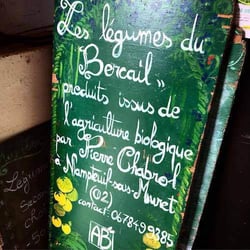 Les légumes du
Bercail"
produits issus de
l'agriculture biologique
par Pierre Chabrol
à Nampteuil-sous-Muret
(02)
contact: 0678499385
AB
Légume